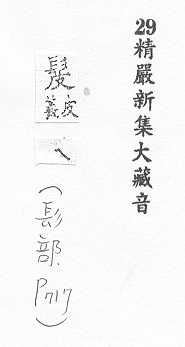 29精嚴新集大藏音
(髟部. P717)